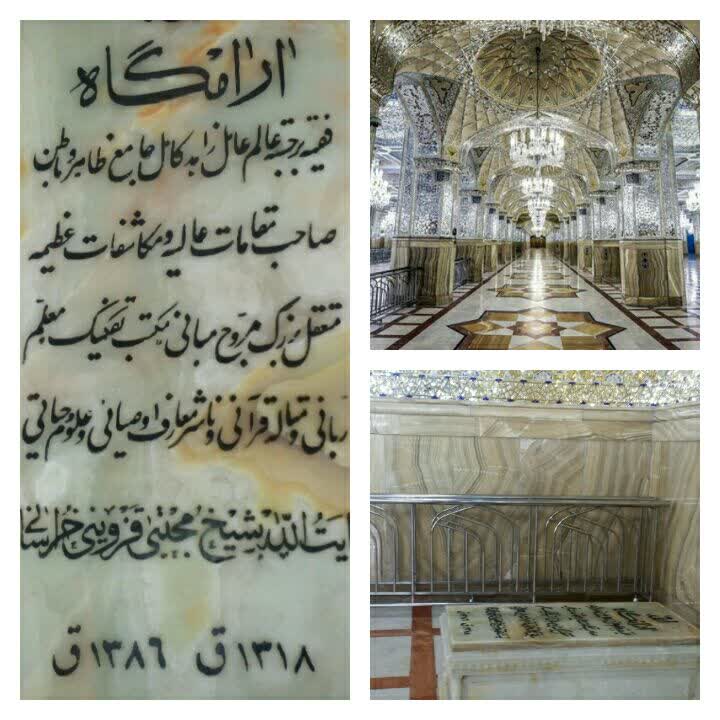 آرامگاه
فقیه برجسته عالم عامل زاهد کامل جامع ظاهر و باطن
صاحب مقامات عالیه و مکاشفات عظیمه
متعقل بزرگ مروج مبانی مکتب تفکیک معلم
ربانی و متاله قرآنی و ناشر معارف اوصیائی و علوم حیاتی
آیت الله شیخ مجتبی قزوینی خراسانی
۱۳۱۸ ق ۱۳۸۶ ق